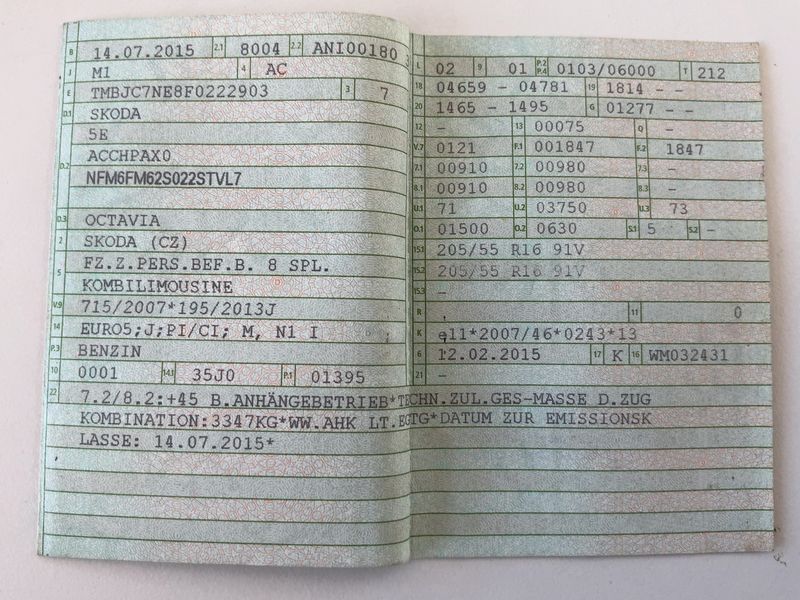 B 14.07.2015 2.1 8004 2.2 ANI00180
J M1 4 AC
E TMBJC7NE8F0222903 3 7
D.1 SKODA
5E
D.2 ACCHPAX0
NFM6FM62S022STVL7
D.3 OCTAVIA
2 SKODA (CZ)
5 FZ.Z.PERS.BEF.B. 8 SPL.
KOMBILIMOUSINE
V.9 715/2007*195/2013J
14 EURO5;J;PI/CI; M, N1 I
P.3 BENZIN
10 0001 14.1 35J0 P.1 01395
L 02 9 01 P.2 P.4 0103/06000 T 212
18 04659 - 04781 19 1814 - -
20 1465 - 1495 G 01277 - -
12 - 13 00075 Q -
V.7 0121 F.1 001847 F.2 1847
7.1 00910 7.2 00980 7.3 -
8.1 00910 8.2 00980 8.3 -
U.1 71 U.2 03750 U.3 73
O.1 01500 O.2 0630 S.1 5 S.2 -
15.1 205/55 R16 91V
15.2 205/55 R16 91V
15.3 -
R 11 0
K e11*2007/46*0243*13
6 12.02.2015 17 K 16 WM032431
21 -
22 7.2/8.2:+45 B.ANHÄNGEBETRIEB*TECHN.ZUL.GES-MASSE D.ZUG
KOMBINATION:3347KG*WW.AHK LT.EGTG*DATUM ZUR EMISSIONSK
LASSE: 14.07.2015*